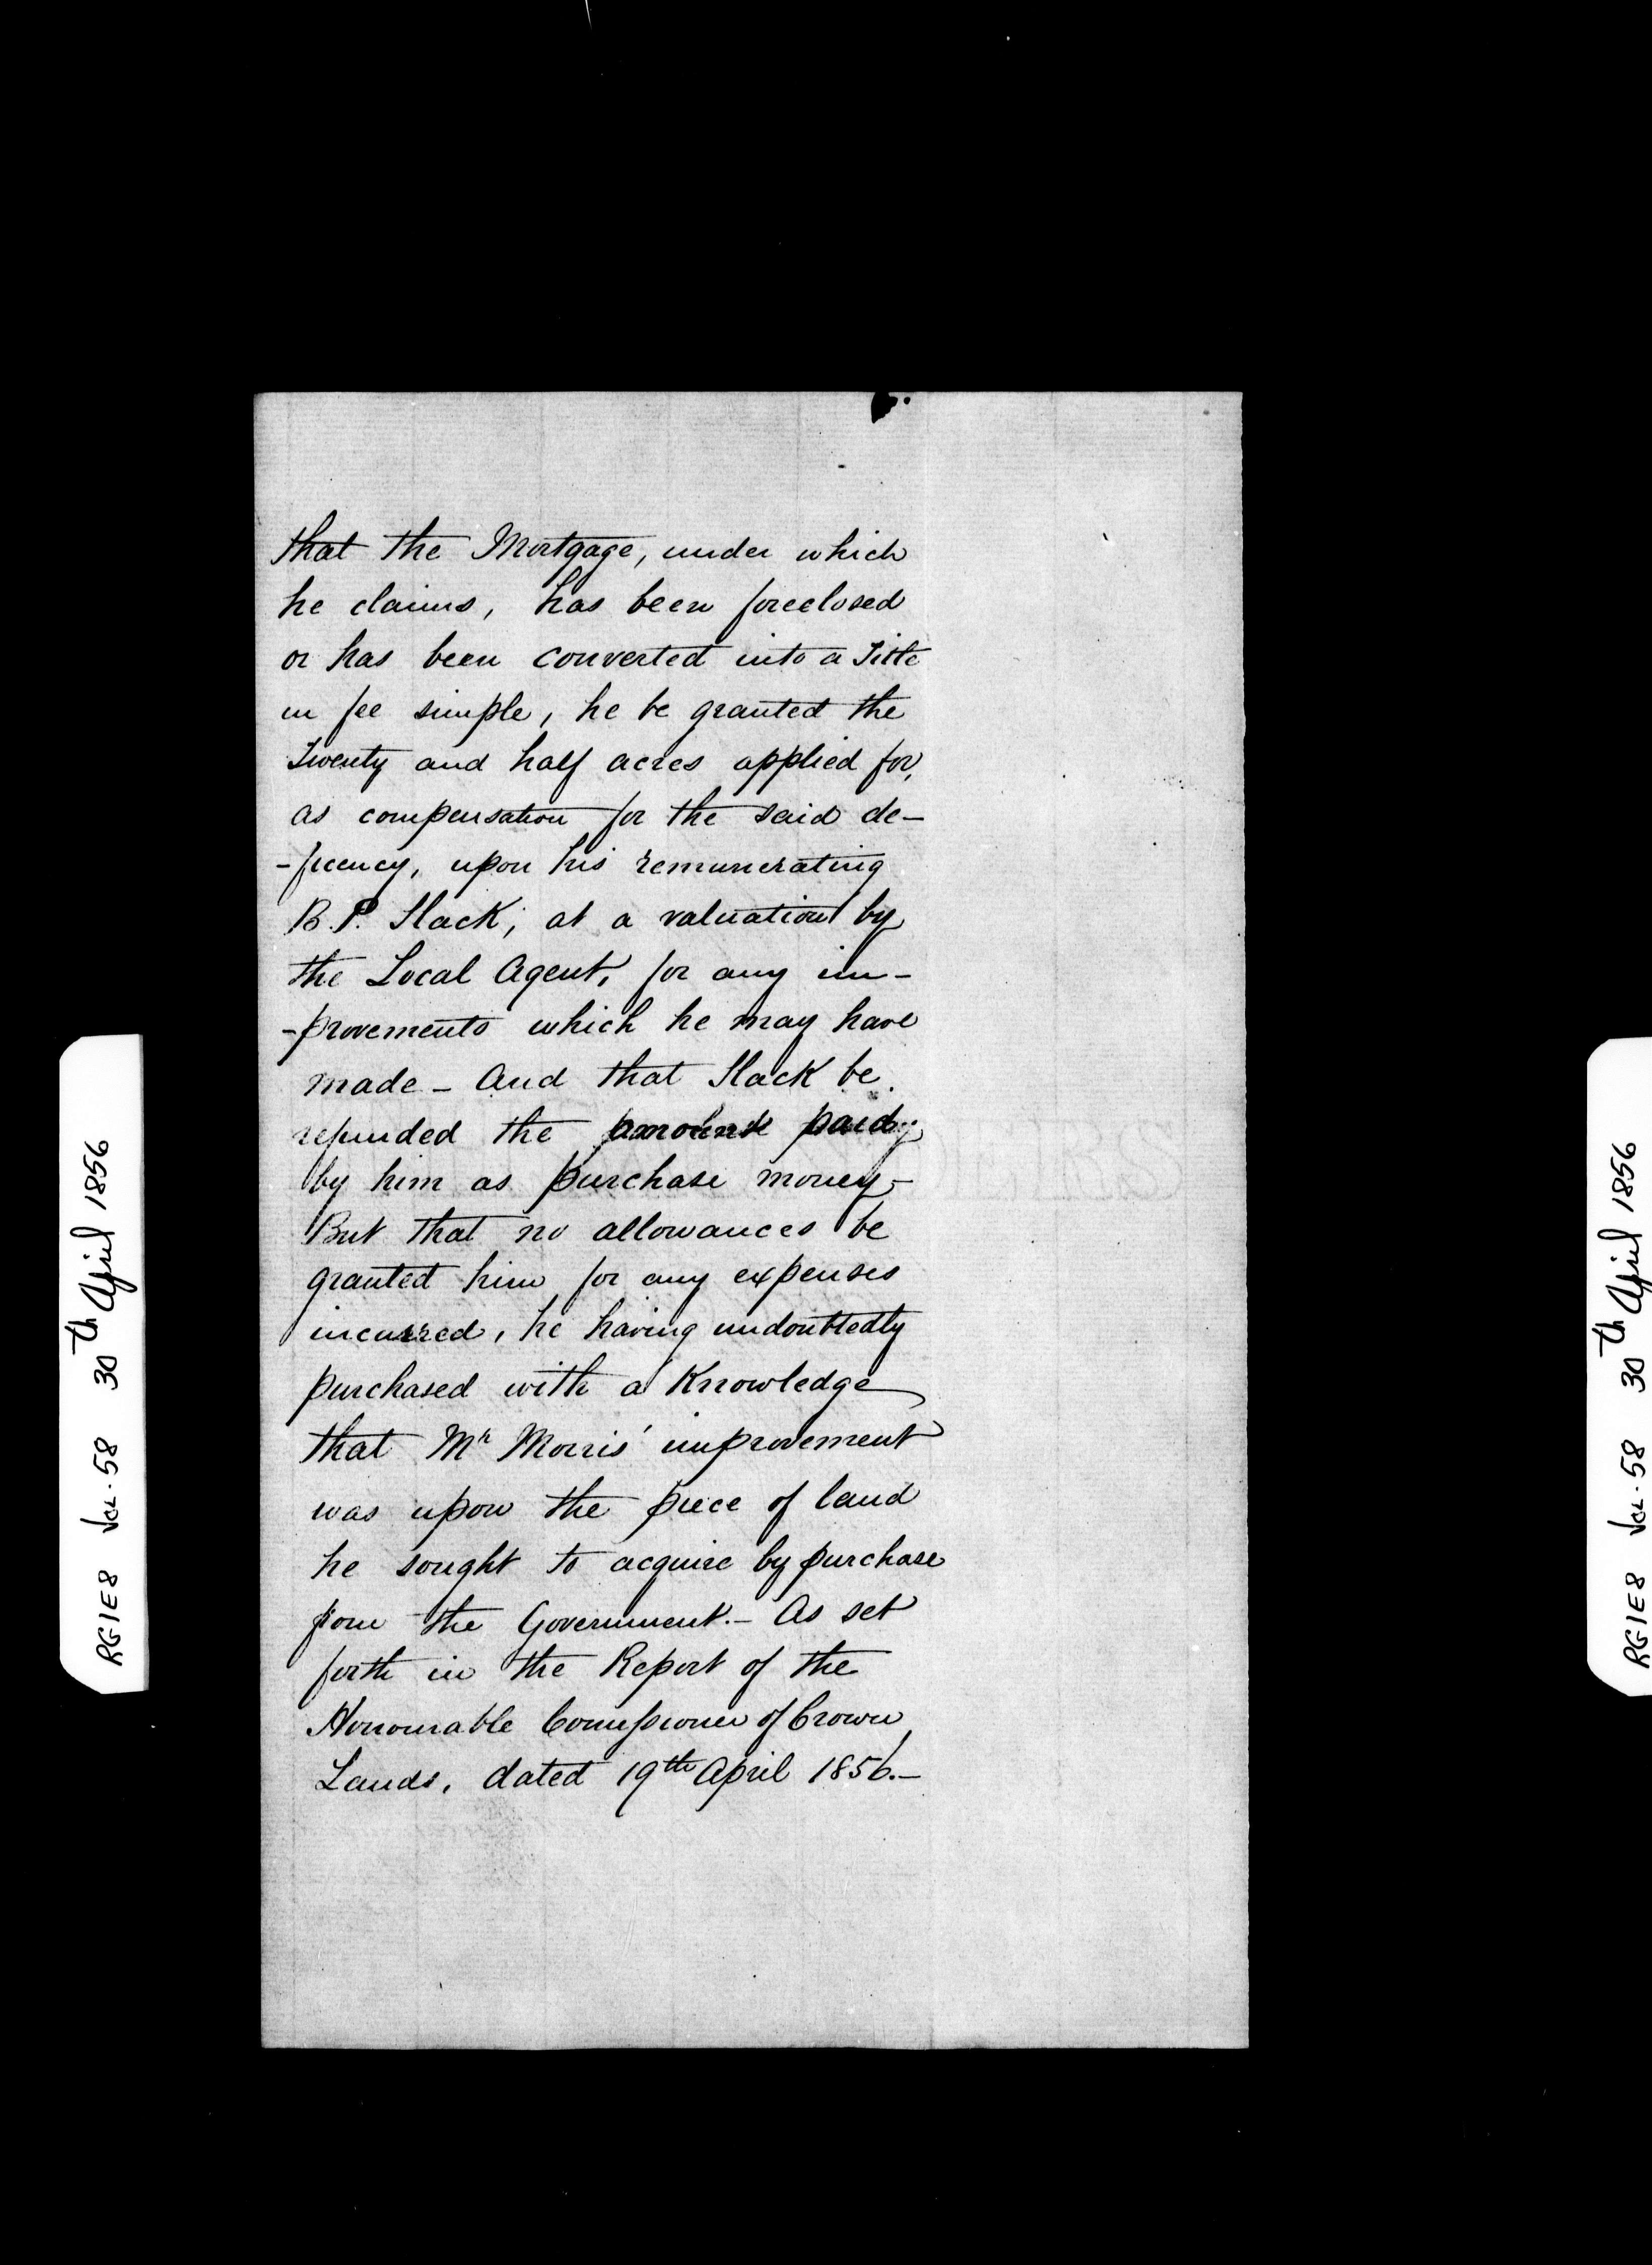 that the Mortgage, under which
he claims, has been foreclosed
or has been converted into a Title
in fee simple, he be granted the
Twenty and half acres applied for,
as compensation for the said de-
-ficency, upon his remunerating
B. P. Slack, at a valuation by
the Local Agent, for any im-
-provements which he may have
made - And that Slack be
refunded the amount paid
by him as purchase money -
But that no allowances be
granted him for any expenses
incurred, he having undoubtedly
purchased with a Knowledge
that Mr Morris' improvement
was upon the piece of land
he sought to acquire by purchase
from the Government. - As set
forth in the Report of the
Honourable Comissioner of Crown
Lands, dated 19th April 1856. -
RG1E8 Vol. 58 30th April 1856
RG1E8 Vol. 58 30th April 1856